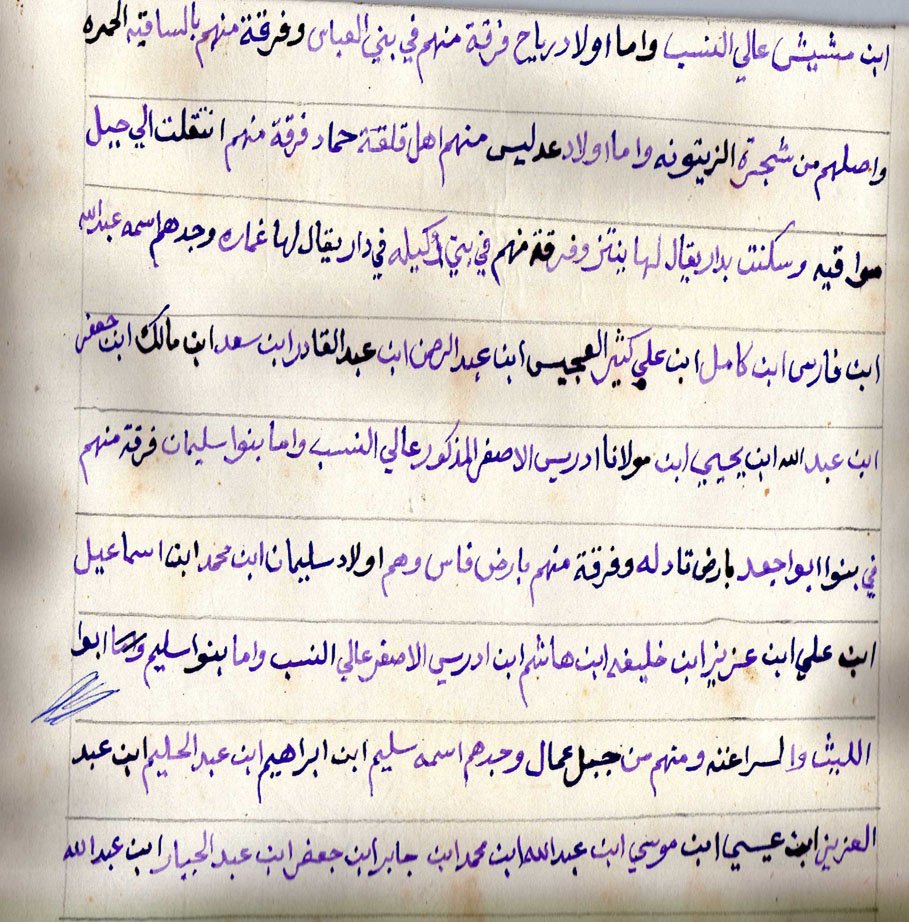 ابن مشيش عالي النسب واما اولاد رياح فرقة منهم في بني العباس وفرقة منهم بالساقيه الحمره
واصلهم من شجرة الزيتونه واما اولاد عدليس منهم اهل قلقة حماد فرقة منهم انتقلت الي جبل
سواقيه وسكنت بدار يقال لها ينتز وفرقة منهم في بني وكيله في دار يقال لها غماره وجدهم اسمه عبدالله
ابن فارس ابن كامل ابن علي كثير العجيس ابن عبد الرحمن ابن عبد القادر ابن سعد ابن مالك ابن جعفر
ابن عبد الله ابن يحيي ابن مولانا ادريس الاصغر المذكور عالي النسب واما بنوا سليمان فرقة منهم
في بنوا ابوا جعد بارض تادله وفرقة منهم بارض فاس وهم اولاد سليمان ابن محمد ابن اسماعيل
ابن علي ابن عزيز ابن خليفه ابن هاشم ابن ادريس الاصغر عالي النسب واما بنوا سليم ابوا
الليث والسراغنه ومنهم من جبل عمال وجدهم اسمه سليم ابن ابراهيم ابن عبد الحليم ابن عبد
العزيز ابن عيسي ابن موسي ابن عبد الله ابن محمد ابن جابر ابن جعفر ابن عبد الجبار ابن عبد الله